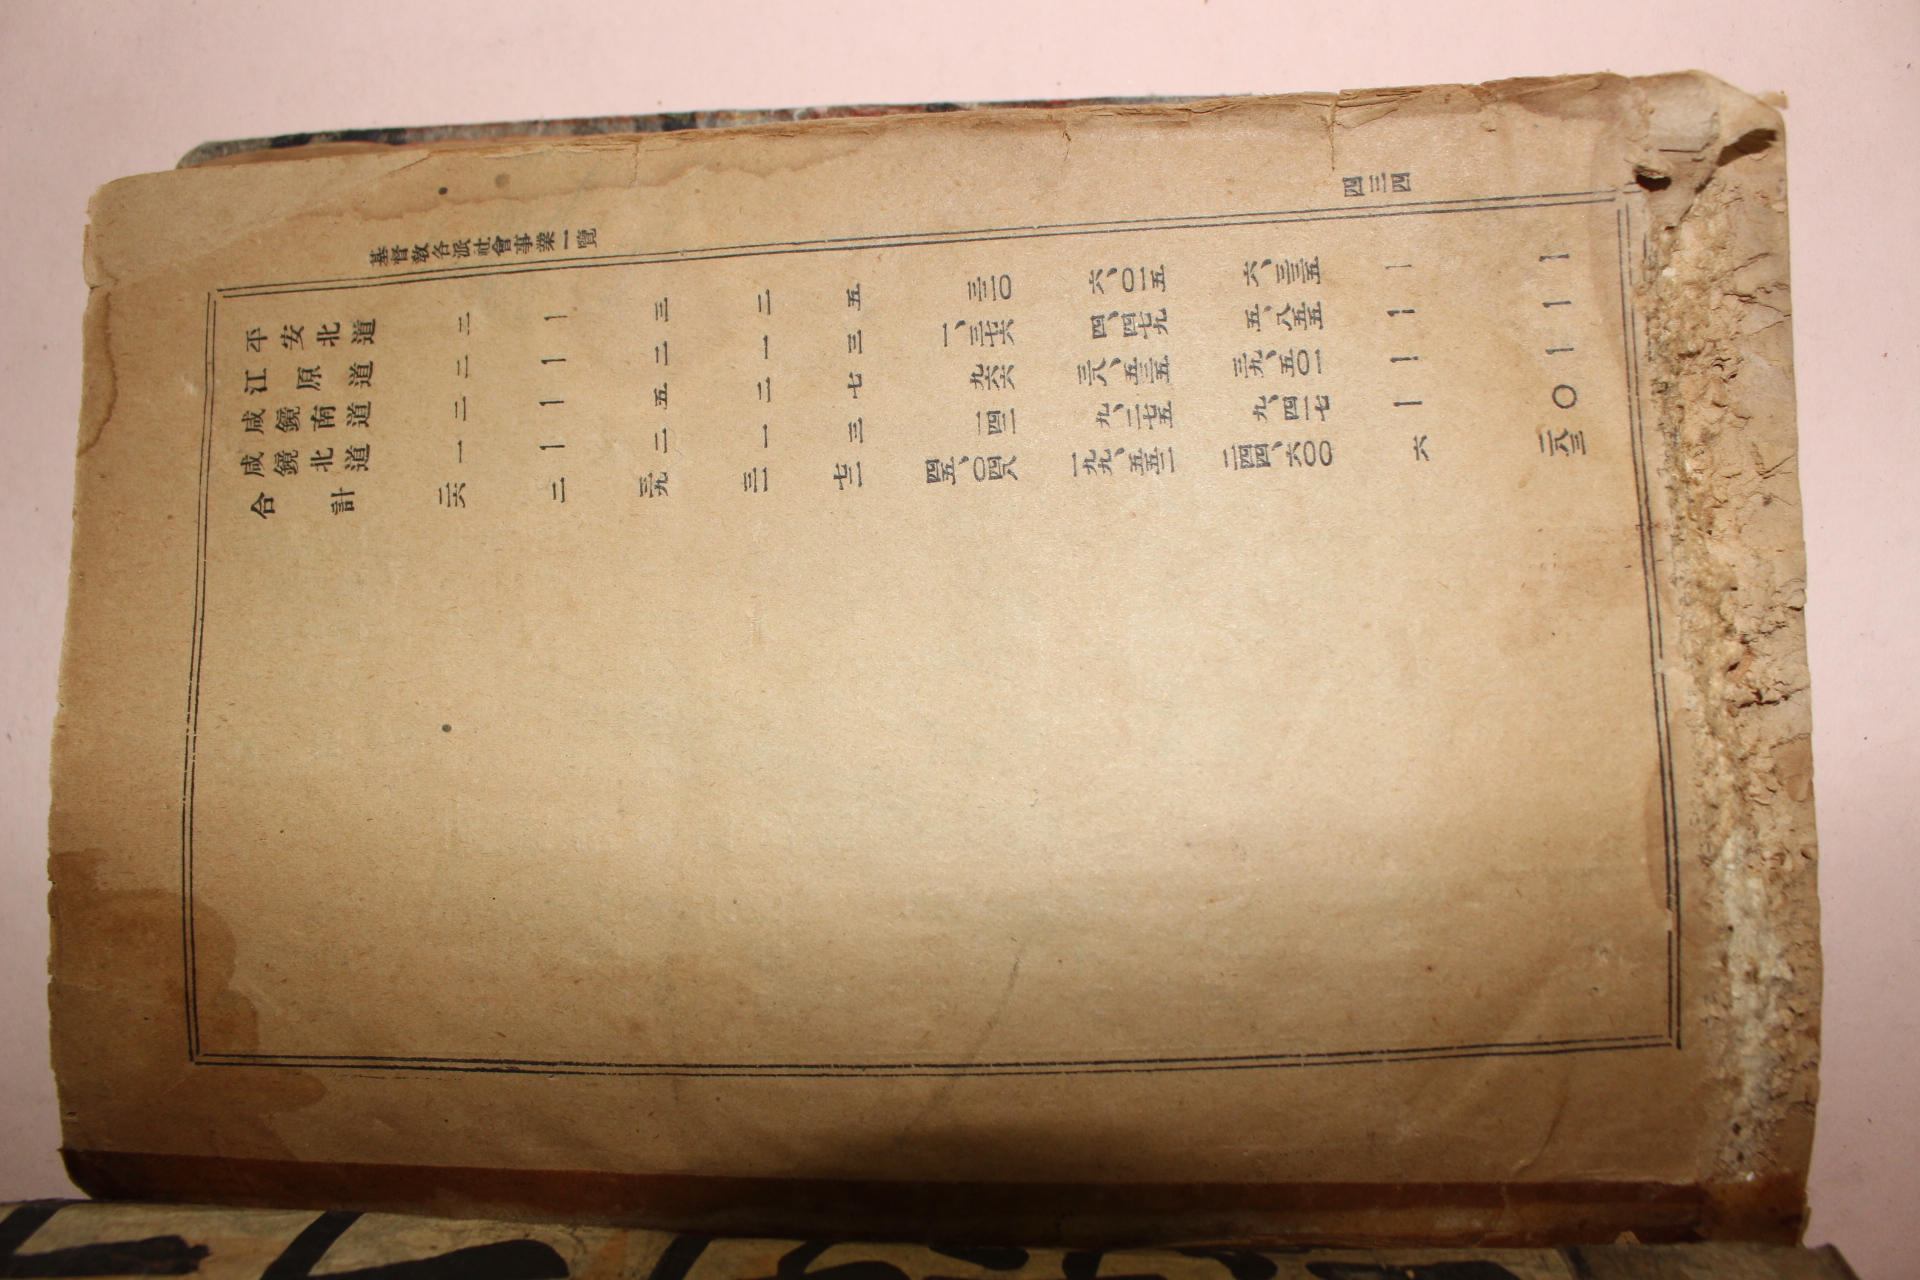 基督敎各派社會事業一覽
四三四
平安北道 二 ｜ 三 二 五 三二〇 六、〇一五 六、三三五 ｜ ｜
江原道 二 ｜ 二 一 三 一、三七六 四、四七九 五、八五五 ｜ ｜
咸鏡南道 二 ｜ 五 二 七 九六六 三八、五三五 三九、五〇一 ｜ ｜
咸鏡北道 一 ｜ 二 一 三 一四二 九、二七五 九、四一七 ｜ 〇
合計 二六 二 三九 三二 七一 四五、〇四八 一九九、五五二 二四四、六〇〇 六 二八三